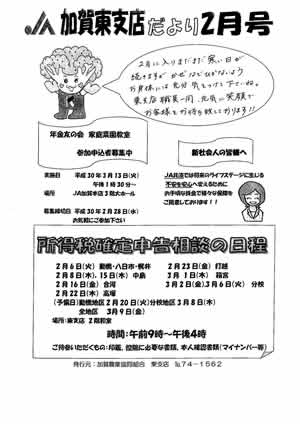 JA 加賀東支店だより2月号
2月に入りまだまだ寒い日が
続きますが かぜなどひかないよう
お身体には充分 気をつけて下さいね。
東支店 職員一同、元気に笑顔で
お客様をお待ち致しております!!
年金友の会 家庭菜園教室
参加申込者募集中
新社会人の皆様へ
実施日 平成30年3月13日(火)
午後1時30分~
場所 JA加賀本店3階大ホール
募集締切日 平成30年2月28日(水)
お気軽にご参加下さい
JA共済では将来のライフステージに生じる
不安を安心へ変えるために
お手頃な掛金で様々な保障を
ご用意しております!
所得税確定申告相談の日程
2月6日(火) 動橋・八日市・梶井
2月23日(金) 打越
2月8日(木)、15日(木) 中島
3月1日(木) 箱宮
2月16日(金) 合河
3月2日(金)3月6日(火) 分校
2月22日(木) 高塚
(予備日)動橋地区2月20日(火)分校地区3月8日(木)
全地区 3月9日(金)
場所:東支店 2階和室
時間:午前9時~午後4時
ご持参いただくもの:印鑑、控除に必要な書類、本人確認書類(マイナンバー等)
発行元:加賀農業協同組合 東支店 ℡74-1562